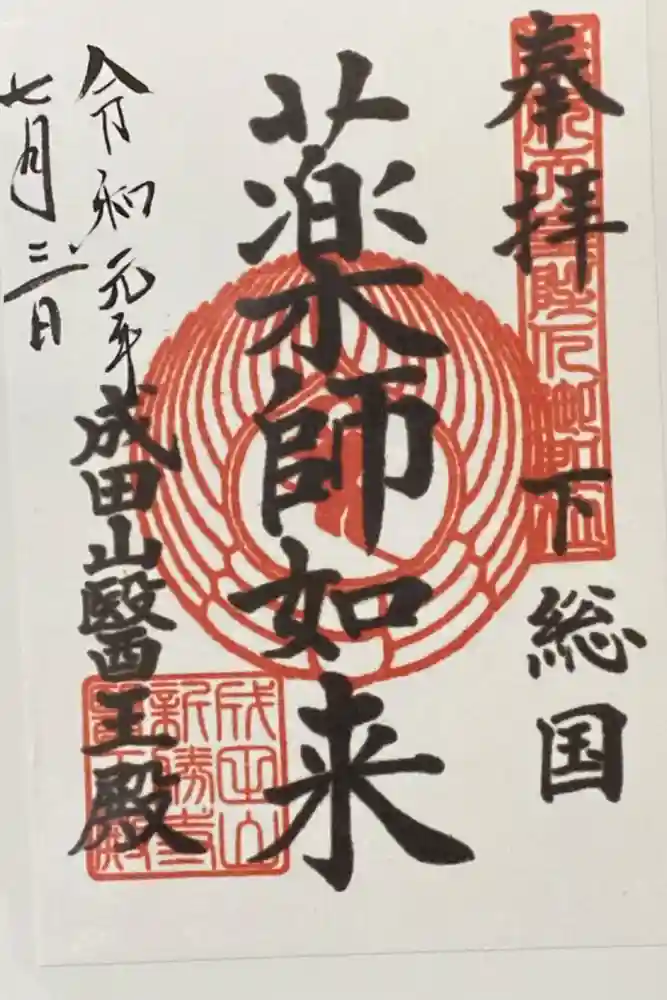 奉拝 下総国
薬師如来
成田山醫王殿
令和元年
七月三日
成田山
新勝寺